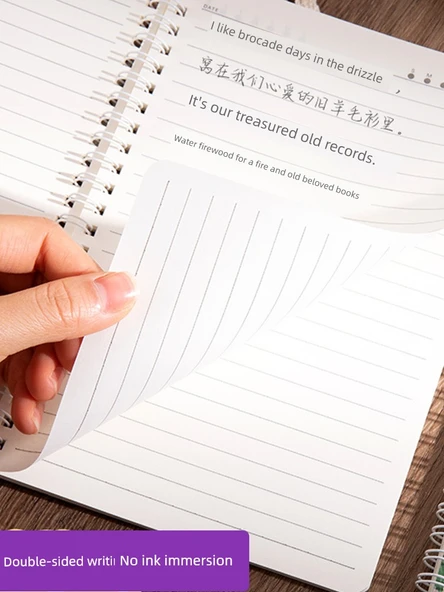 DATE
S M
I like brocade days in the drizzle
,
窝在我们心爱的旧羊毛衫里。
It's our treasured old records.
Water firewood for a fire and old beloved books
Double-sided writi No ink immersion